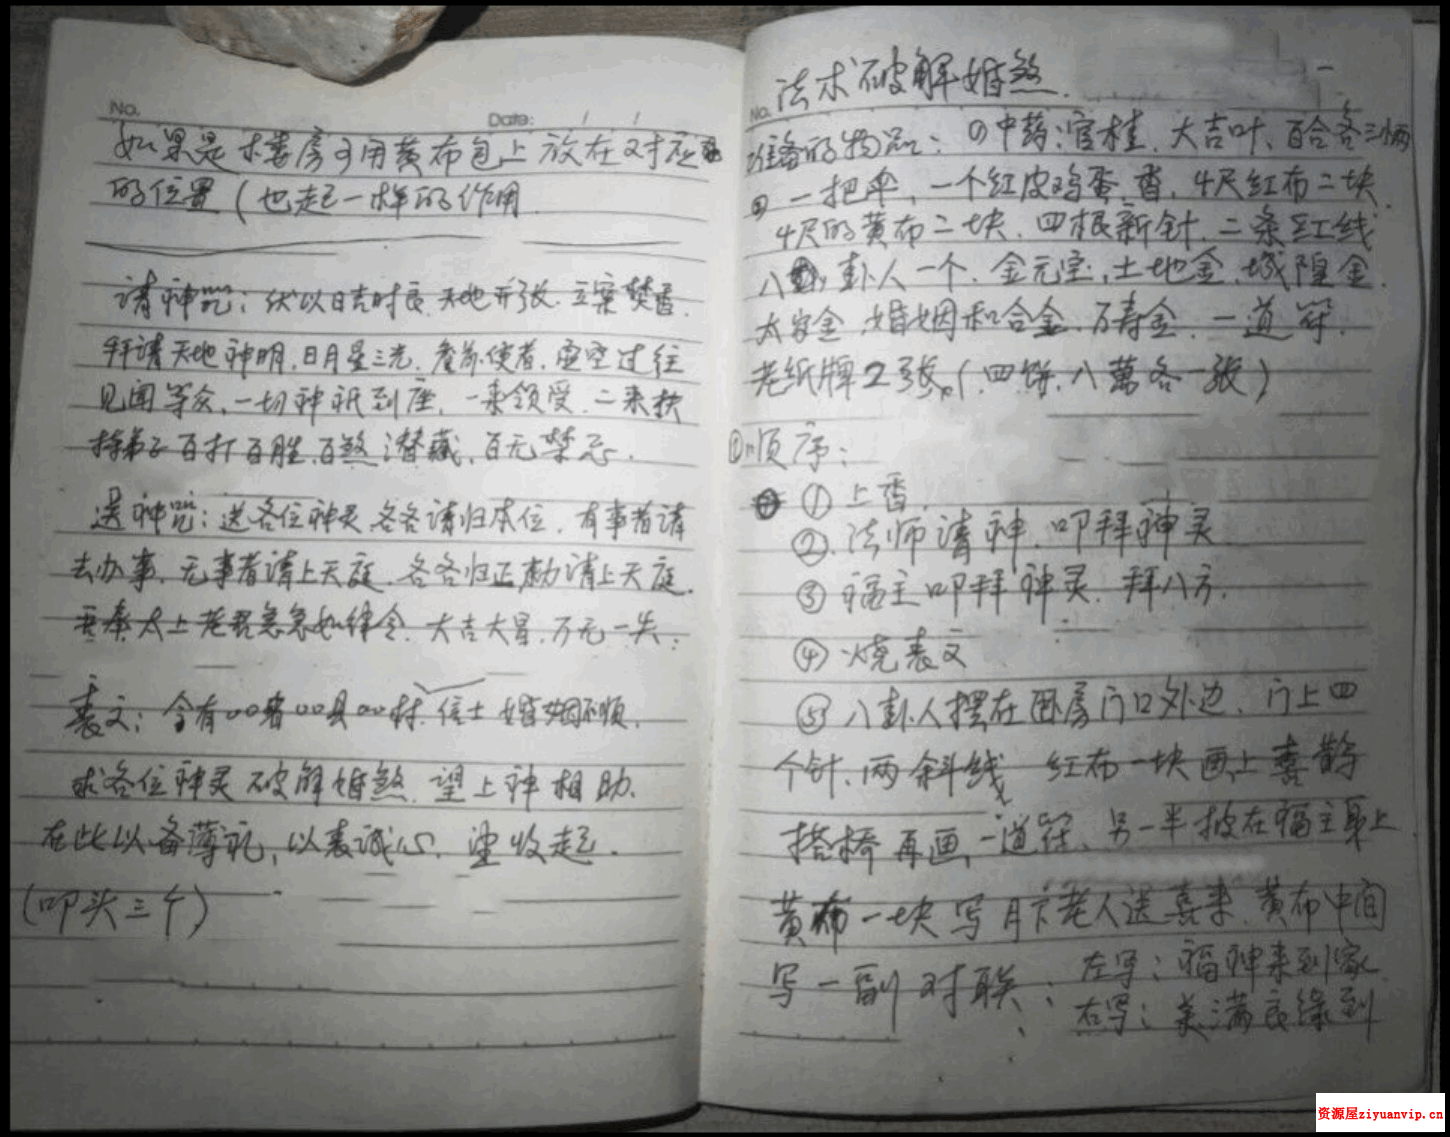 No.
Date: / /
如果是楼房可用黄布包上放在对应
的位置(也起一样的作用
请神咒:伏以日吉时良,天地开张,立案焚香.
拜请天地神明,日月星三光,虚空过往
见闻等众,一切神祇到座,一来领受,二来扶
持弟子百打百胜,百煞潜藏,百无禁忌.
送神咒:送各位神灵各各请归本位,有事者请
去办事,无事者请上天庭.各各归正,请上天庭.
吾奉太上老君急急如律令.大吉大昌,万无一失.
表文:今有○○省○○县○○村,信士婚姻不顺.
求各位神灵破解婚煞,望上神相助.
在此以备薄礼,以表诚心,望收起.
(叩头三个)
法术破解婚煞
No.
准备的物品:①中药:官桂、大吉叶、百合各三两
一把伞,一个红皮鸡蛋,香,4尺红布二块.
4尺的黄布二块.四根新针.二条红线
八卦人一个.金元宝,土地金.城隍金.
太岁金.婚姻和合金.万寿金.一道符.
老纸牌2张,(四饼.八萬各一张)
顺序:
①上香.
②.法师请神,叩拜神灵
③福主叩拜神灵.拜八方.
④烧表文
⑤八卦人摆在卧房门口外边.门上四
个针.两条线 红布一块画上喜鹊
搭桥再画一道符、另一半披在福主身上.
黄布一块写月下老人送喜来.黄布中间
写一副对联:左写:福神来到家
右写:美满良缘到
资源屋ziyuanvip.cn